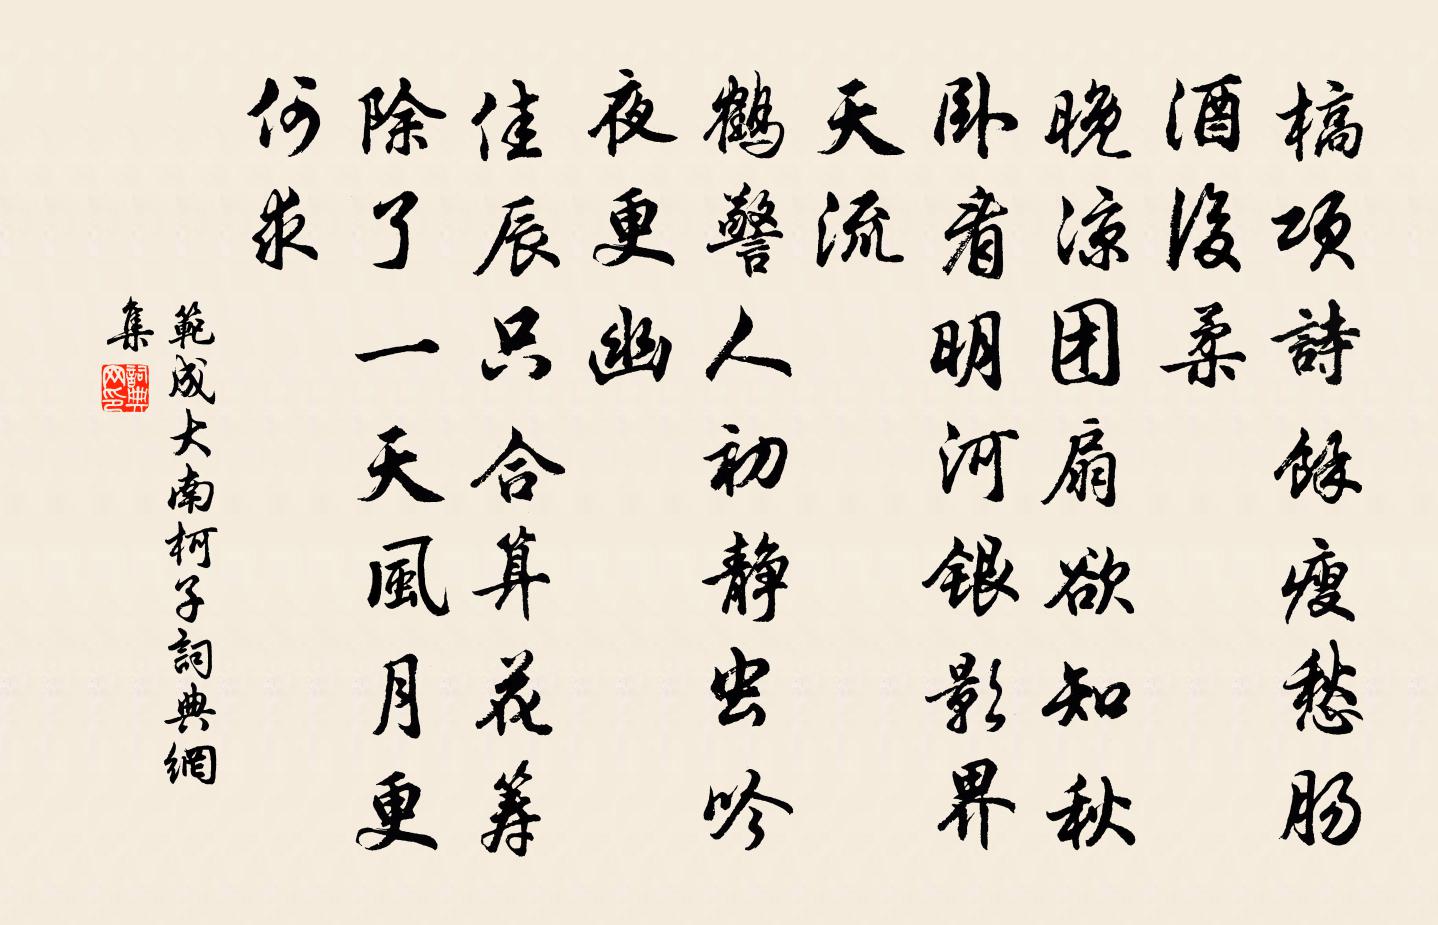 槁項詩餘瘦愁肠
酒後柔
晚凉团扇欲知秋
卧看明河银影界
天流
鶴警人初静虫吟
夜更幽
佳辰只合算花筹
除了一天風月更
何求
範成大南柯子詞典網
集
詞典网印